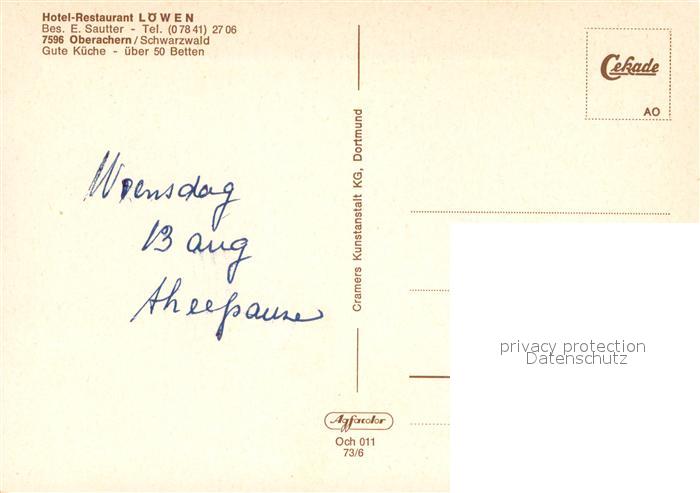 Hotel-Restaurant LÖWEN
Bes. E. Sautter - Tel. (0 78 41) 27 06
7596 Oberachern / Schwarzwald
Gute Küche - über 50 Betten
Cekade
AO
Woensdag
13 aug
theepauze
Cramers Kunstanstalt KG, Dortmund
privacy protection
Datenschutz
Agfacolor
Och 011
73/6